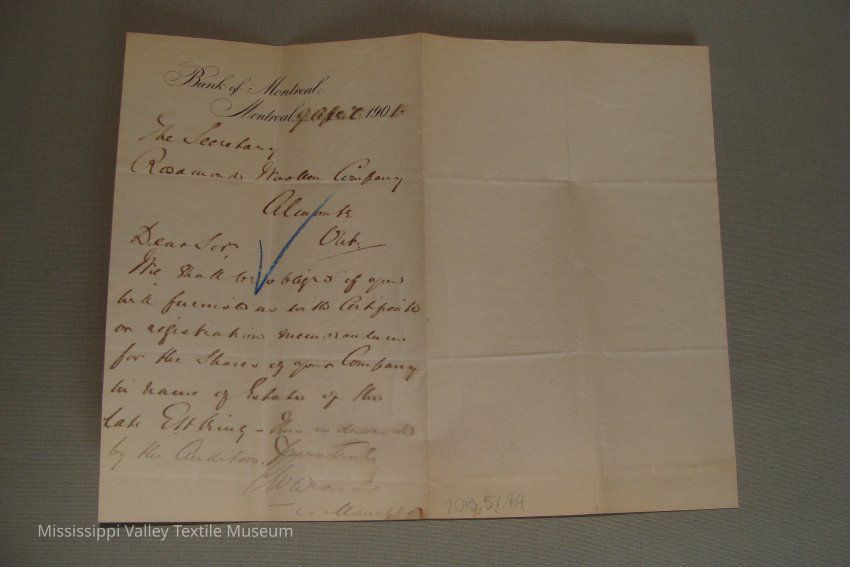 Bank of Montreal,
Montreal, 9 April 1901
The Secretary
Rosamond Woollen Company
Almonte
Ont.
Dear Sir,
We shall be obliged if you
will furnish us with Certificate
or registration memorandum
for the Shares of your Company
in name of Estate of the
late E H King - This is demanded
by the Auditors. Yours truly
Manager
2013.57.69
Mississippi Valley Textile Museum